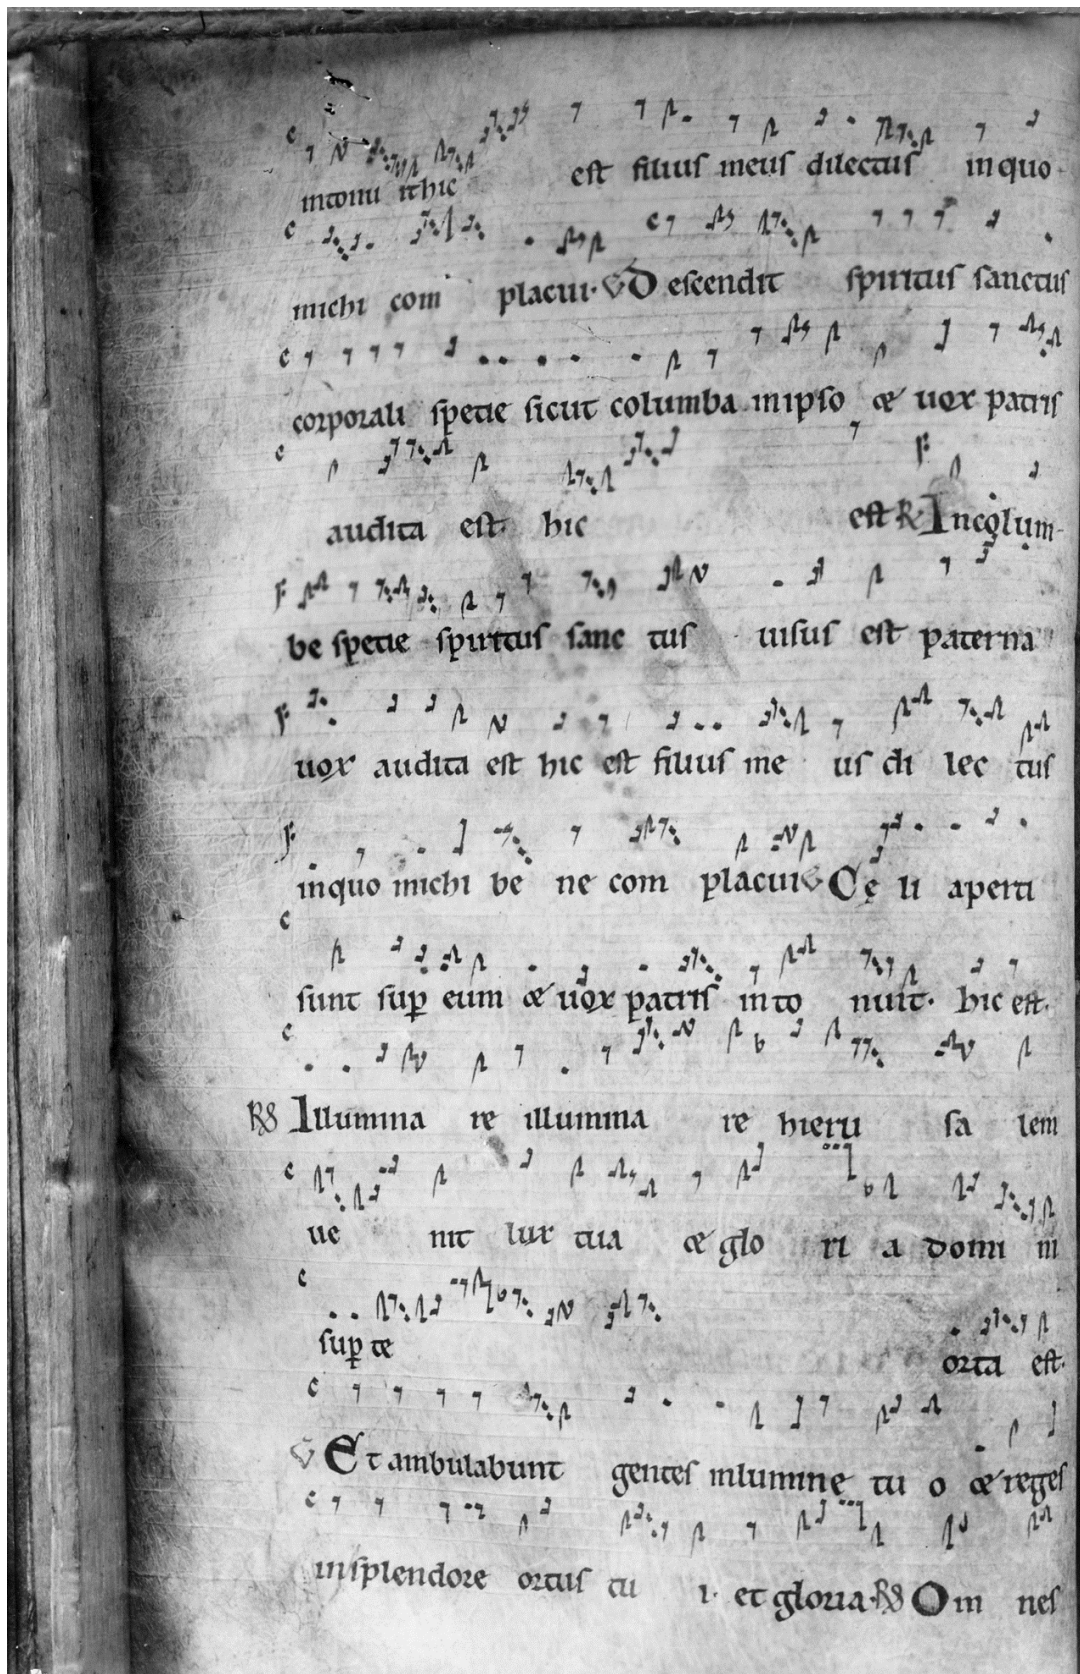 intonu it hic est filius meus dilectus in quo
michi com placui. V Descendit spiritus sanctus
corporali spetie sicut columba in ipso & uox patris
audita est hic est R Incolum-
be spetie spiritus sanc tus uisus est paterna
uox audita est hic est filius me us di lec tus
in quo michi be ne com placui V Cę li aperti
sunt sup eum & uox patris in to nuit. hic est.
R Illumina re illumina re hieru sa lem
ue nit lux tua & glo ri a domi ni
sup te orta est.
V Et ambulabunt gentes in lumine tu o & reges
in splendore ortus tu i. et gloria. R Om nes